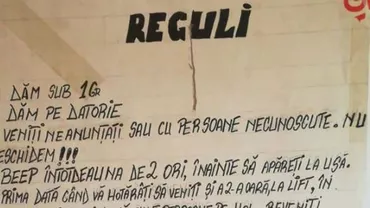 REGULI
DĂM SUB 1G
DĂM PE DATORIE
VENIȚI NEANUNȚAȚI SAU CU PERSOANE NECUNOSCUTE. NU
ESCHIDEM!!!
BEEP ÎNTOTDEAUNA DE 2 ORI, ÎNAINTE SĂ APĂREȚI LA UȘĂ.
PRIMA DATĂ CÂND VĂ HOTĂRÂȚI SĂ VENIȚI ȘI A 2-A OARĂ, LA LIFT, ÎN
PERSOANE PE HOL, REVENIȚI